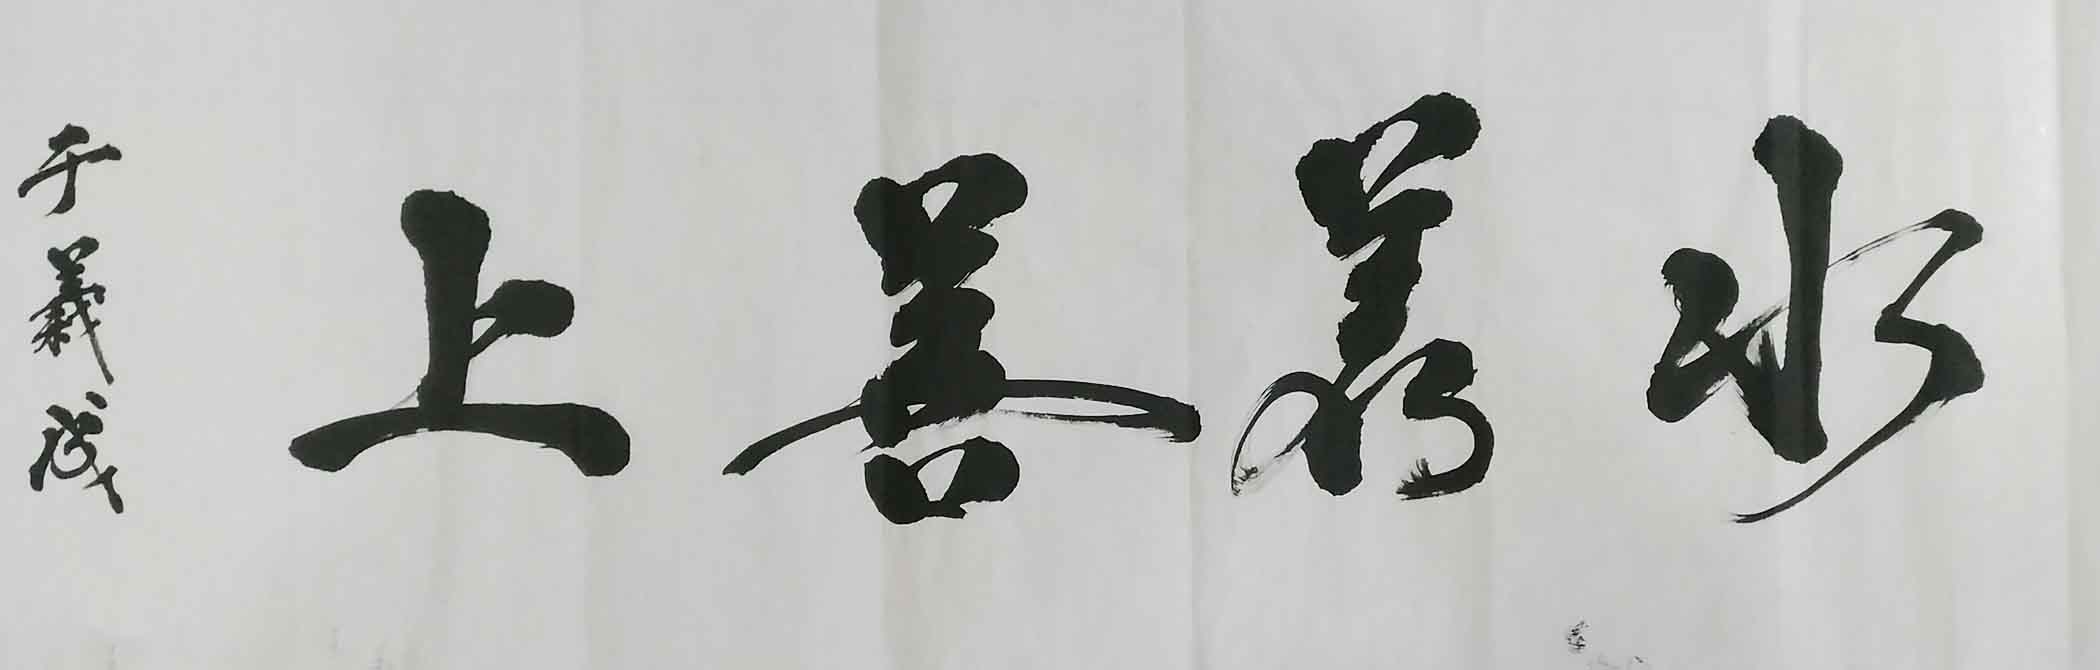 上善若水
于義